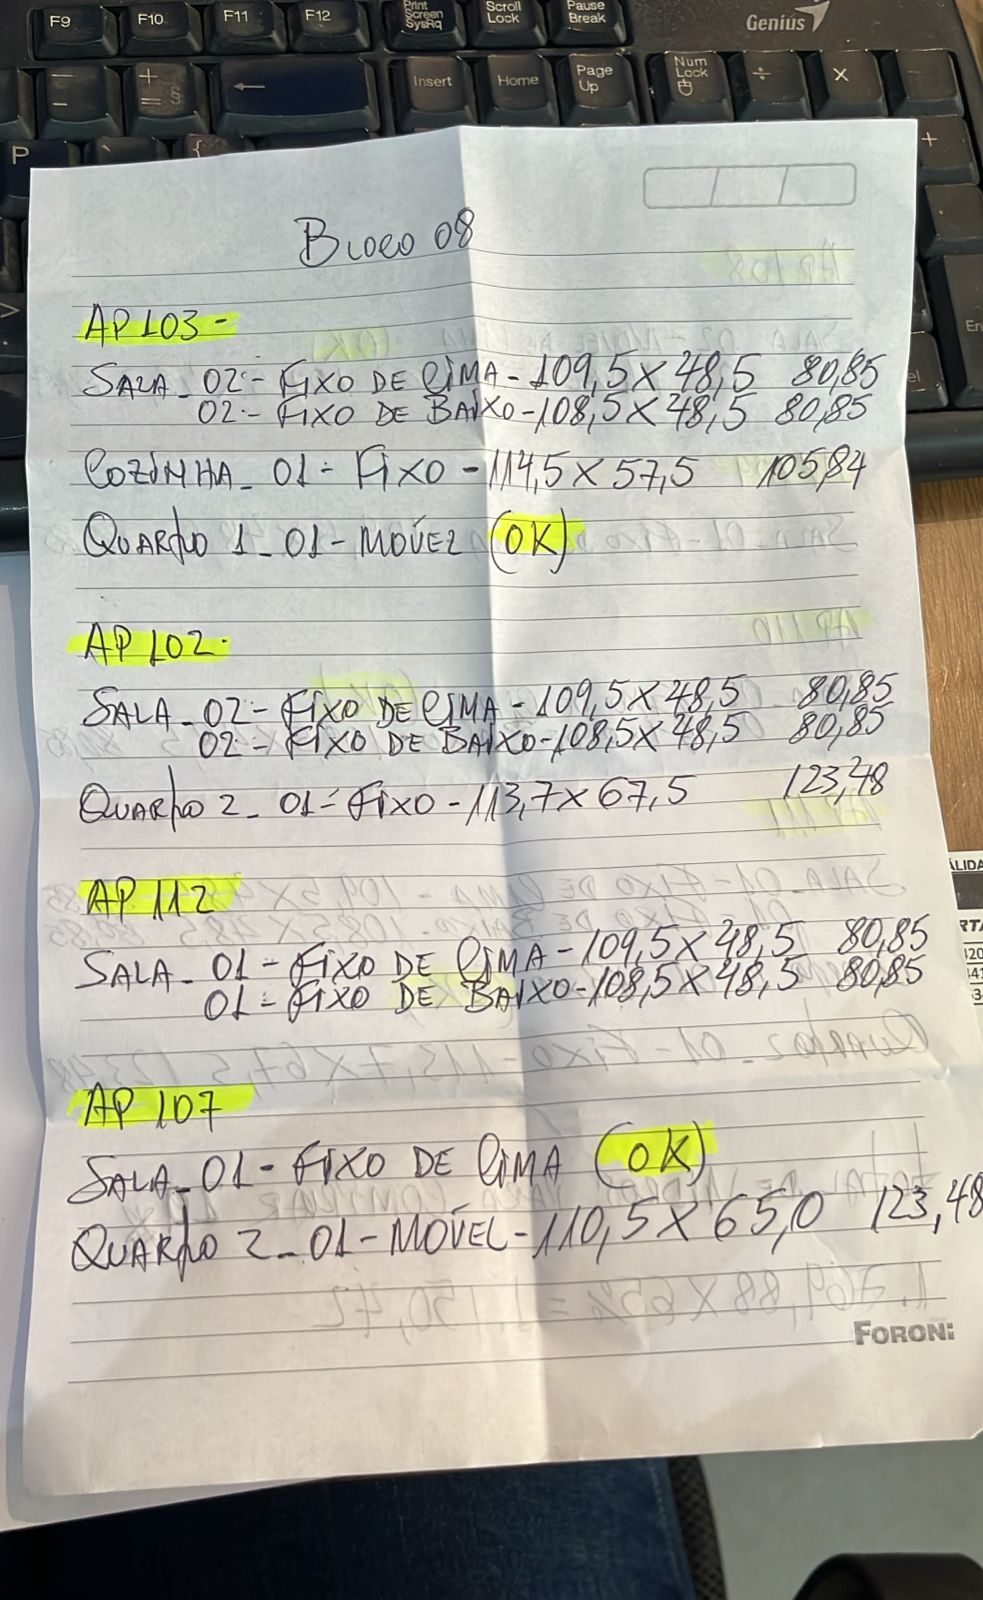 F9 F10 F11 F12 Print Screen SysRq Scroll Lock Pause Break Genius
Insert Home Page Up Num Lock ÷ X
P
+
Bloco 08
AP 103-
SALA_02-FIXO DE CIMA-109,5X48,5 80,85
02-FIXO DE BAIXO-108,5X48,5 80,85
COZINHA_01-FIXO-114,5X57,5 105,84
QUARTO 1_01-MOVEL (OK)
AP 102-
SALA_02-FIXO DE CIMA-109,5X48,5 80,85
02-FIXO DE BAIXO-108,5X48,5 80,85
QUARTO 2_01-FIXO-113,7X67,5 123,48
AP 112
SALA_01-FIXO DE CIMA-109,5X48,5 80,85
01-FIXO DE BAIXO-108,5X48,5 80,85
AP 107
SALA_01-FIXO DE CIMA (OK)
QUARTO 2_01-MÓVEL-110,5X65,0 123,48
FORONI